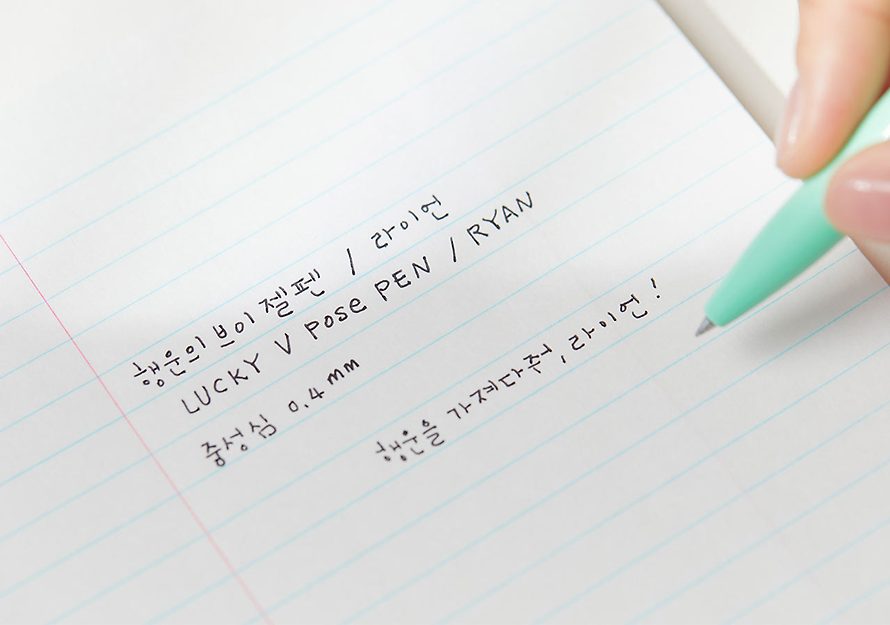 행운의 브이 젤펜 / 라이언
LUCKY V POSE PEN / RYAN
중성심 0.4 mm
행운을 가져다줘, 라이언!